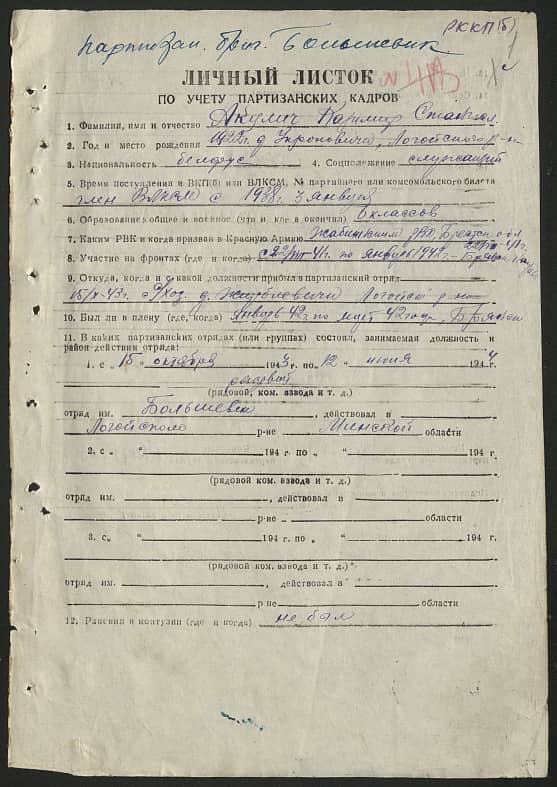 РККП(б)
партизан. бриг. Большевик
ЛИЧНЫЙ ЛИСТОК
ПО УЧЕТУ ПАРТИЗАНСКИХ КАДРОВ
1. Фамилия, имя и отчество Акулич
2. Год и место рождения 1922г. д. Логойского р-н
3. Национальность белорус 4. Соцположение служащий
5. Время поступления в ВКП(б) или ВЛКСМ, № партийного или комсомольского билета
член ВЛКСМ с 1938 г января
6. Образование общее и военное (что и когда окончил) 6 классов
7. Каким РВК и когда призван в Красную Армию Жабинким РВК Брестск. обл
8. Участие на фронтах (где и когда) с 22/VI-41г. по январь 1942г.
9. Откуда, когда и с какой должности прибыл в партизанский отряд
15/X-43г. с/хоз. д. Логойск р-на
10. Был ли в плену (где, когда) январь 42г. по март 42 года,
11. В каких партизанских отрядах (или группах) состоял, занимаемая должность и
район действий отряда:
1. с „15 “ октября 1943 г. по „12 “ июня 1944
рядовой
(рядовой, ком. взвода и т. д.)
отряд им. Большевик, действовал в
Логойском р-не Минской области
2. с „ “ 194 г по „ “ 194 г.
(рядовой ком. взвода и т. д.)
отряд им. , действовал в
р-не области
3. с „ “ 194 г. по „ “ 194 г.
(рядовой ком. взвода и т. д.)
отряд им. , действовал в
р не области
12. Ранения и контузии (где и когда) не был